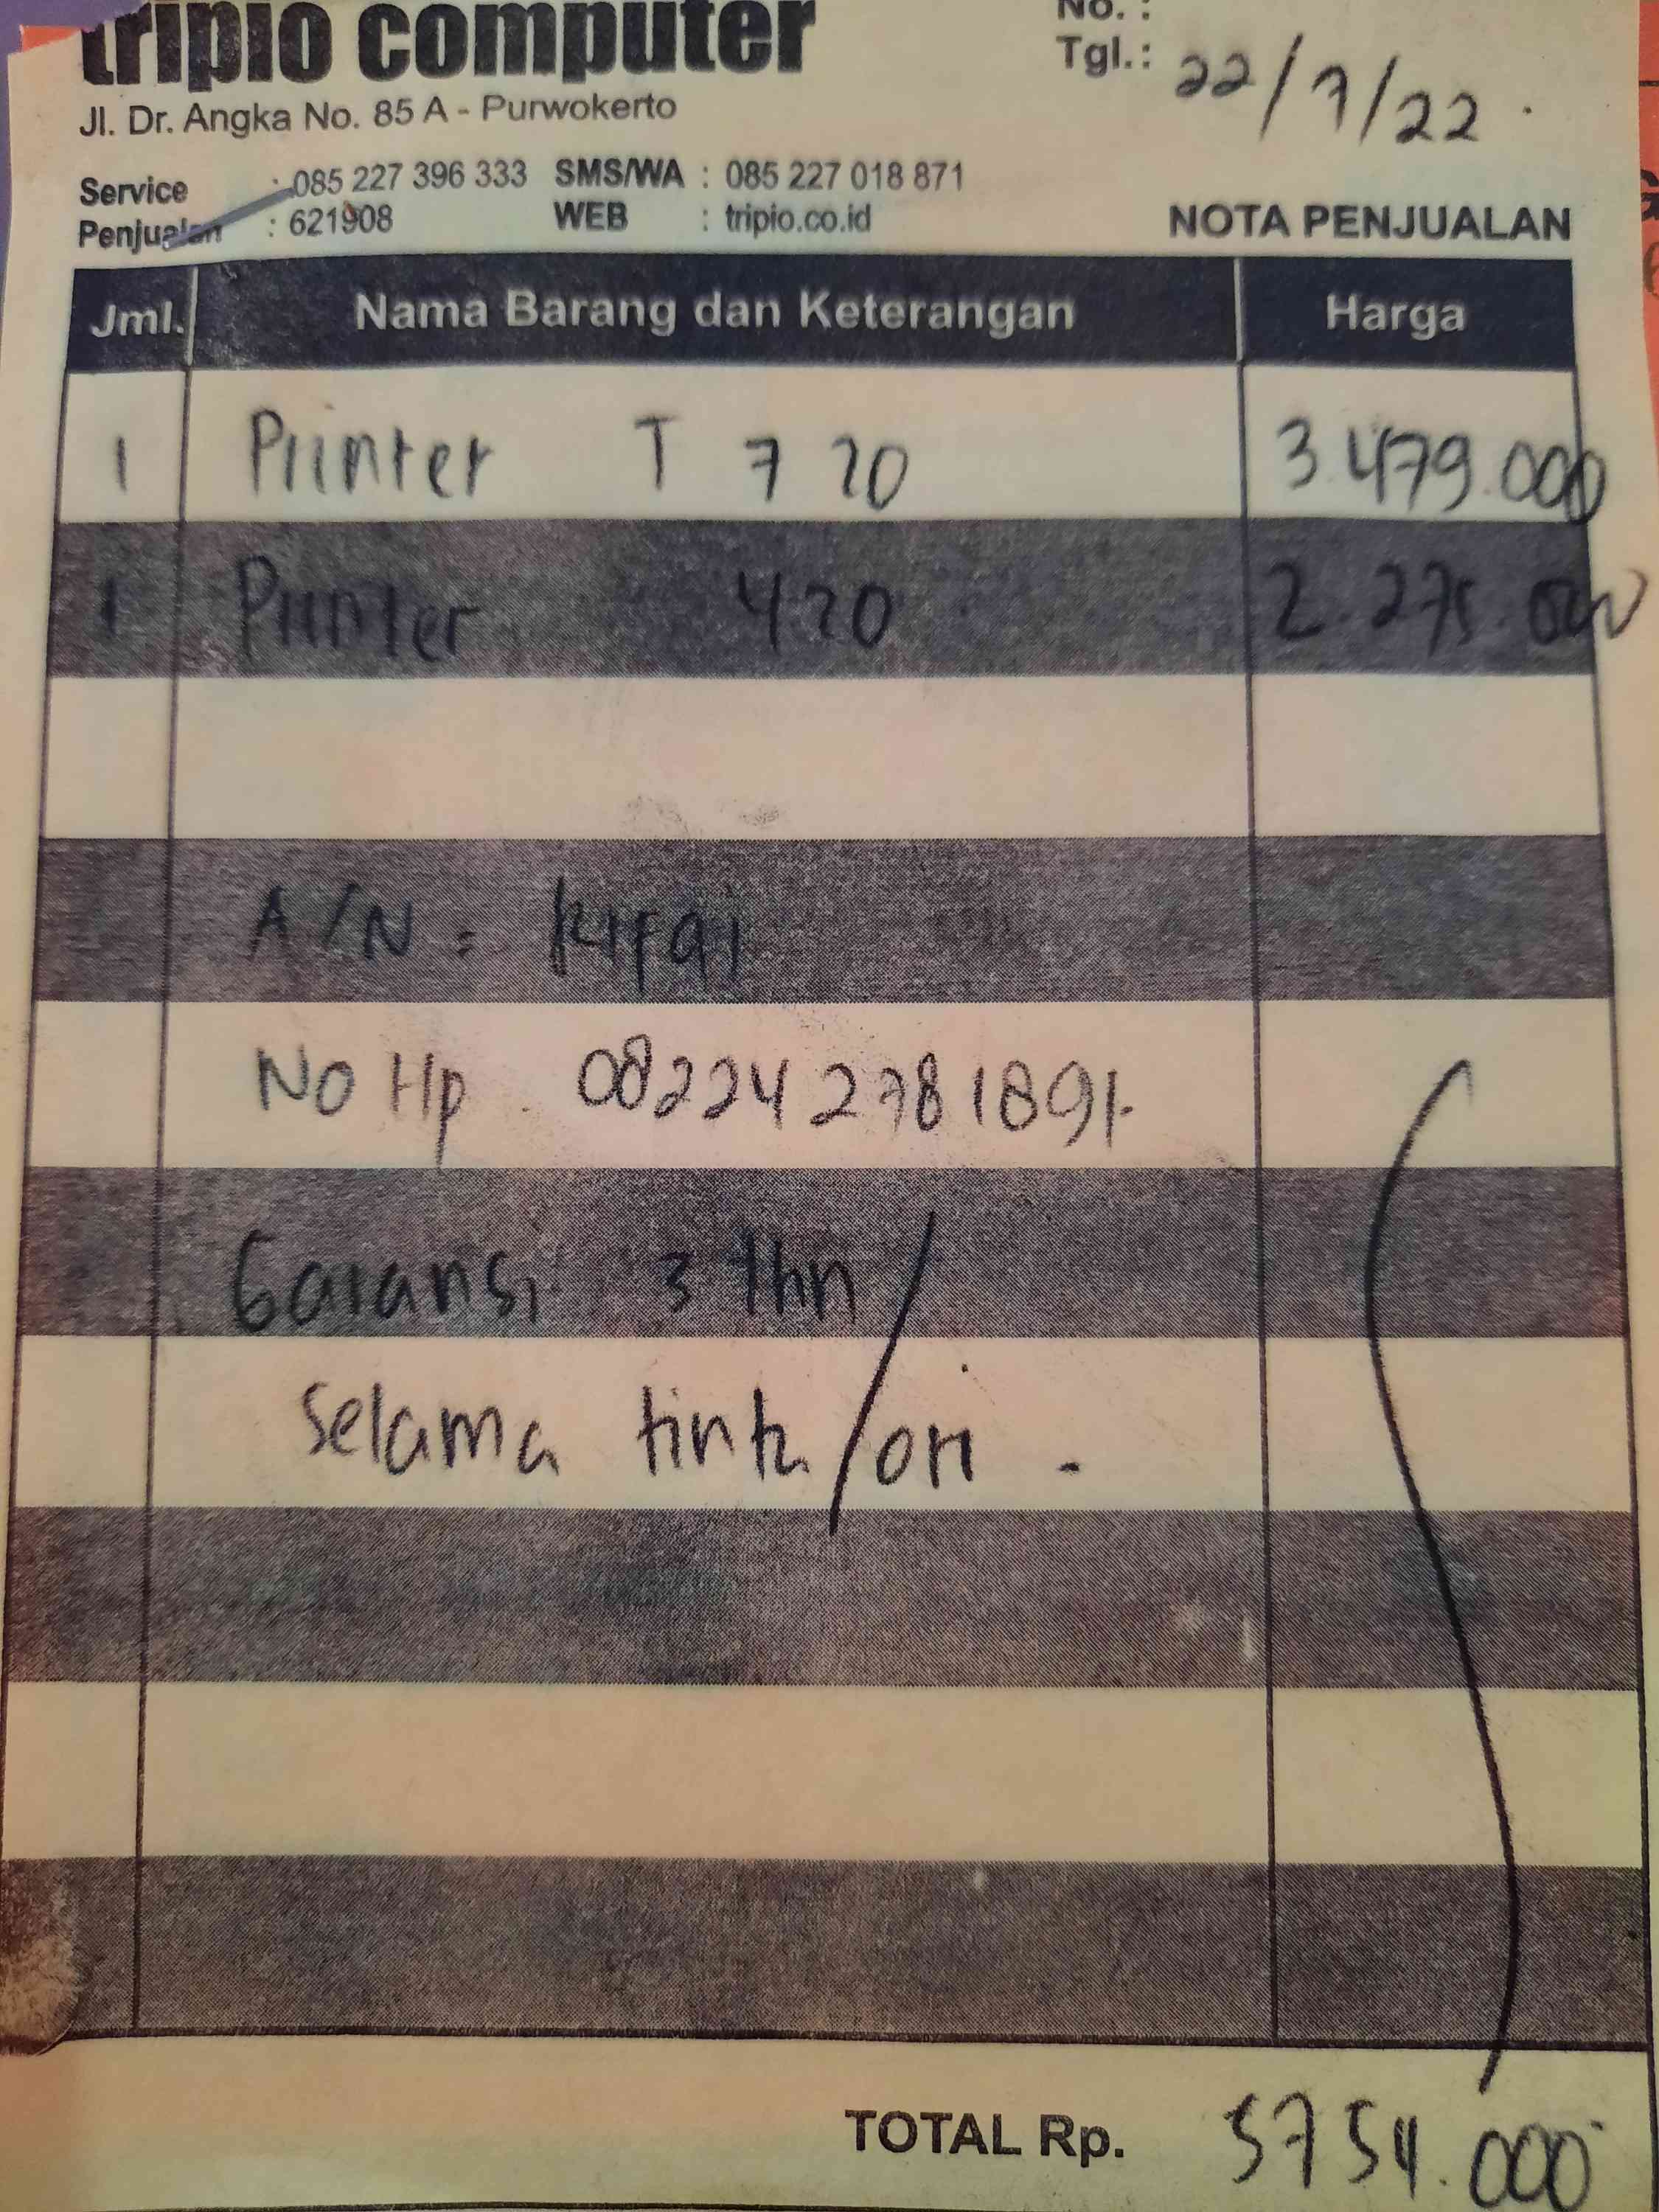 tripio computer
No. :
Tgl.: 22/7/22
Jl. Dr. Angka No. 85 A - Purwokerto
Service : 085 227 396 333 SMS/WA : 085 227 018 871
Penjualan : 621908 WEB : tripio.co.id
NOTA PENJUALAN
Jml. Nama Barang dan Keterangan Harga
1 Printer T 720 3.479.000
1 Printer 420 2.275.000
A/N = Rifqi
No Hp. 082242781891.
Garansi 3 thn /
Selama tinta ori .
TOTAL Rp. 5754.000